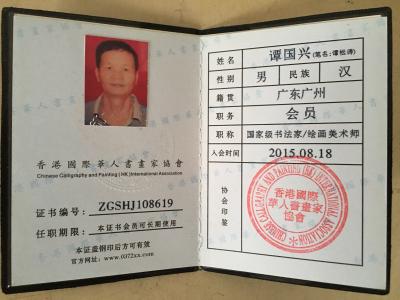 香港國際華人書畫家協會
Chinese Calligraphy and Painting ( HK ) International Association
证书编号: ZGSHJ108619
任职期限: 本证书会员可长期使用
本证盖钢印后方可有效
官方网址:www.0372xx.com
姓名 谭国兴(笔名:谭松涛)
性别 男 民族 汉
籍贯 广东广州
职务 会员
职称 国家级书法家/绘画美术师
入会时间 2015.08.18
协会印签
香港國際
華人書畫家
協會
CHINESE CALLIGRAPHY AND PAINTING (HK) INTERNATIONAL ASSOCIATION